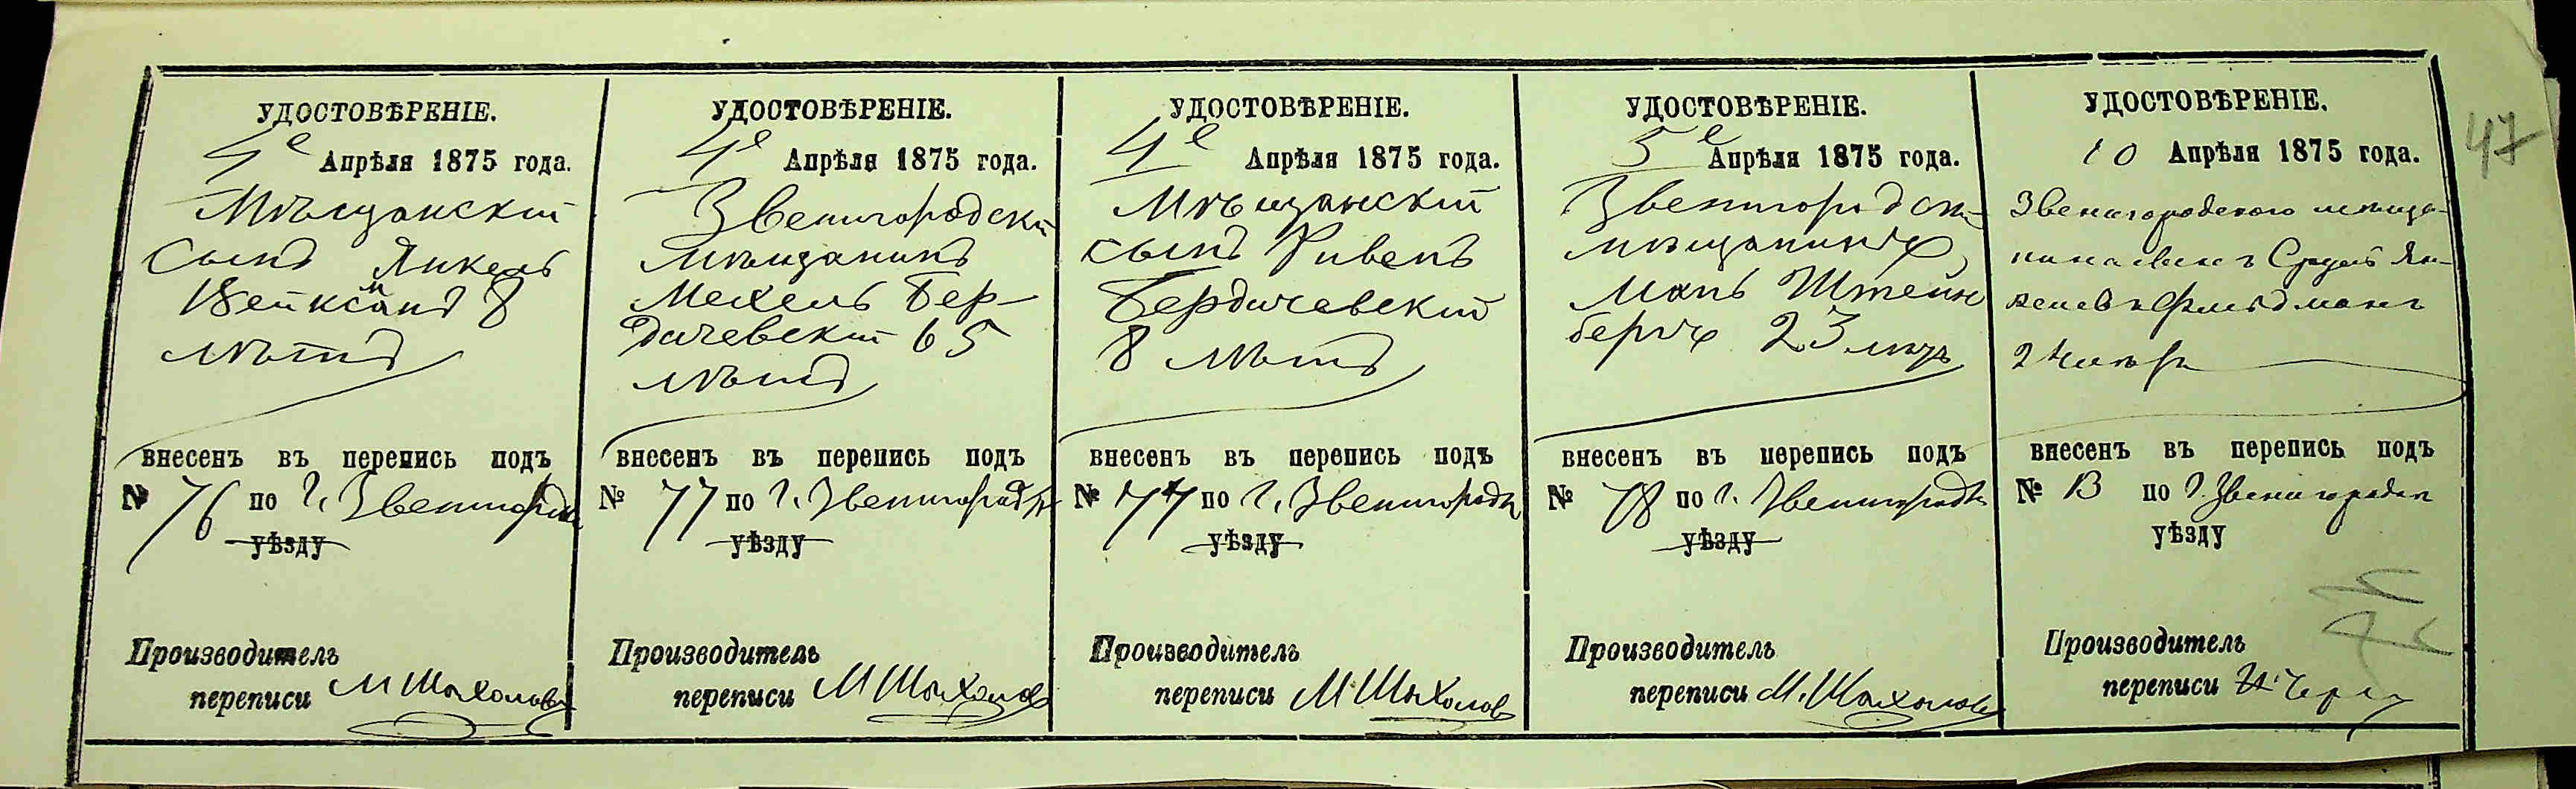 УДОСТОВѢРЕНІЕ.
4е Апрѣля 1875 года.
Мѣщанскій
сынъ Янкель
Вейксманъ 8
лѣтъ
внесенъ въ перепись подъ
№ 76 по г. Звенигородкѣ
уѣзду
Производитель
переписи М Шахолов
УДОСТОВѢРЕНІЕ.
4е Апрѣля 1875 года.
Звенигородскій
мѣщанинъ
Мехель Бер-
дичевскій 65
лѣтъ
внесенъ въ перепись подъ
№ 77 по г. Звенигородкѣ
уѣзду
Производитель
переписи М Шахолов
УДОСТОВѢРЕНІЕ.
4е Апрѣля 1875 года.
Мѣщанскій
сынъ Ривенъ
Бердичевскій
8 лѣтъ
внесенъ въ перепись подъ
№ 77 по г. Звенигородкѣ
уѣзду
Производитель
переписи М Шахолов
УДОСТОВѢРЕНІЕ.
5е Апрѣля 1875 года.
Звенигородскій
мѣщанинъ
Штейн
бергъ 23 лѣтъ
внесенъ въ перепись подъ
№ 78 по г. Звенигородкѣ
уѣзду
Производитель
переписи М. Шахолов
УДОСТОВѢРЕНІЕ.
10 Апрѣля 1875 года.
Звенигородскаго мѣща-
нина сынъ Сруль Ян-
келевъ Фельдманъ
внесенъ въ перепись подъ
№ 13 по г. Звенигородкѣ
уѣзду
Производитель
переписи
47